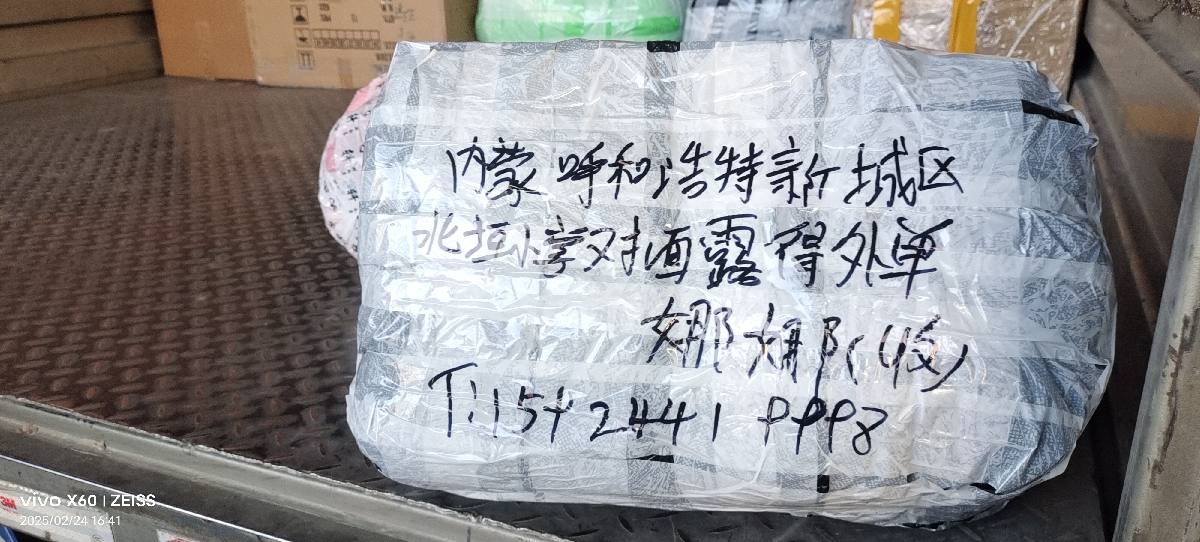 内蒙呼和浩特新城区
北垣小学对面露得外单
娜娜(收)
T:15424419998
3M
vivo X60 | ZEISS
2025/02/24 16:41